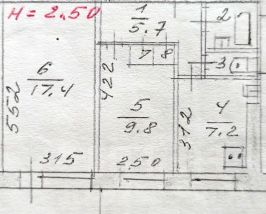 H = 2.50
1
5.7
2
7.8
3
6
17.4
552
422
5
9.8
312
4
7.2
315
250